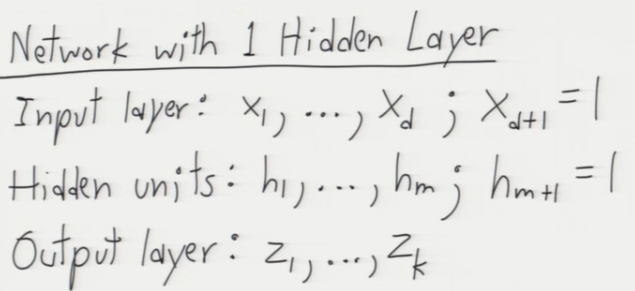 Network with 1 Hidden Layer
Input layer: x₁, ..., x_d ; x_{d+1} = 1
Hidden units: h₁, ..., h_m ; h_{m+1} = 1
Output layer: z₁, ..., z_k